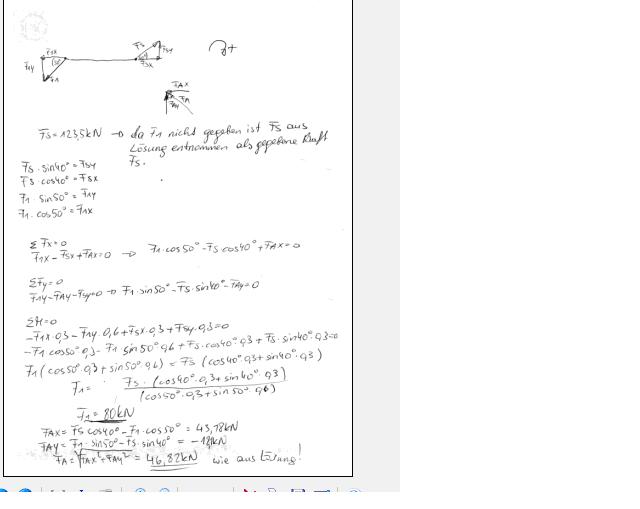 F1x F1y F1 50° Fs Fsy 40° Fsx +
FAX FAY FA
Fs = 123,5kN → da F1 nicht gegeben ist Fs aus
Lösung entnommen als gegebene Kraft
Fs.
Fs · sin40° = Fsy
Fs · cos40° = Fsx
F1 · sin50° = F1y
F1 · cos50° = F1x
ΣFx=0
F1x - Fsx + FAX = 0 → F1 · cos50° - Fs · cos40° + FAX = 0
ΣFy=0
F1y - FAY - Fsy = 0 → F1 · sin50° - Fs · sin40° - FAY = 0
ΣM=0
-F1x · 0,3 - F1y · 0,6 + Fsx · 0,3 + Fsy · 0,3 = 0
-F1 cos50° · 0,3 - F1 sin50° 0,6 + Fs · cos40° 0,3 + Fs · sin40° · 0,3 = 0
F1 (cos50° · 0,3 + sin50° · 0,6) = Fs (cos40° 0,3 + sin40° · 0,3)
F1 = Fs · (cos40° · 0,3 + sin40° · 0,3)
(cos50° · 0,3 + sin50° · 0,6)
F1 = 80kN
FAX = Fs cos40° - F1 · cos50° = 43,18kN
FAY = F1 · sin50° - Fs · sin40° = -18kN
FA = √FAX² + FAY² = 46,82kN wie aus Lösung!